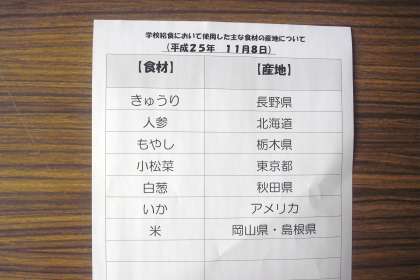 学校給食において使用した主な食材の産地について
(平成25年 11月8日)
【食材】 【産地】
きゅうり 長野県
人参 北海道
もやし 栃木県
小松菜 東京都
白葱 秋田県
いか アメリカ
米 岡山県・島根県